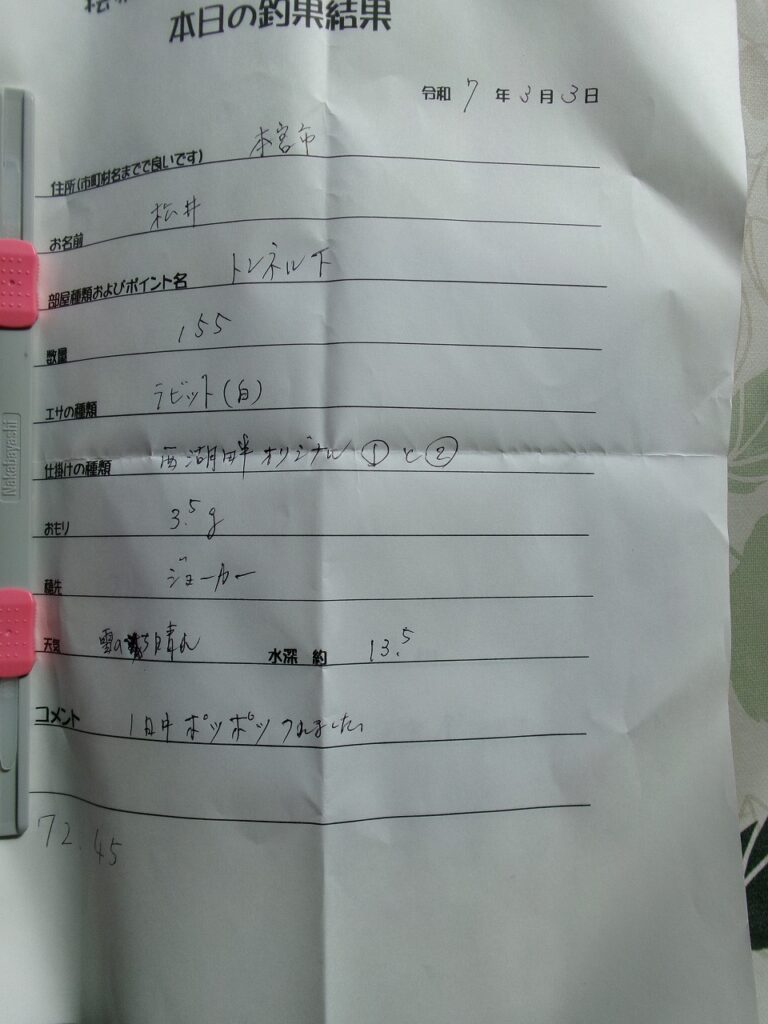 本日の釣果結果
令和 7 年 3 月 3 日
住所(市町村名までで良いです) 本宮市
お名前 松井
部屋種類およびポイント名 トンネル下
数量 155
エサの種類 ラビット(白)
仕掛けの種類 西湖畔オリジナル ①と②
おもり 3.5g
穂先 ジョーカー
天気 雪のち晴れ 水深 約 13.5
コメント 1日中ポツポツつれました。
72.45
Nakabayashi